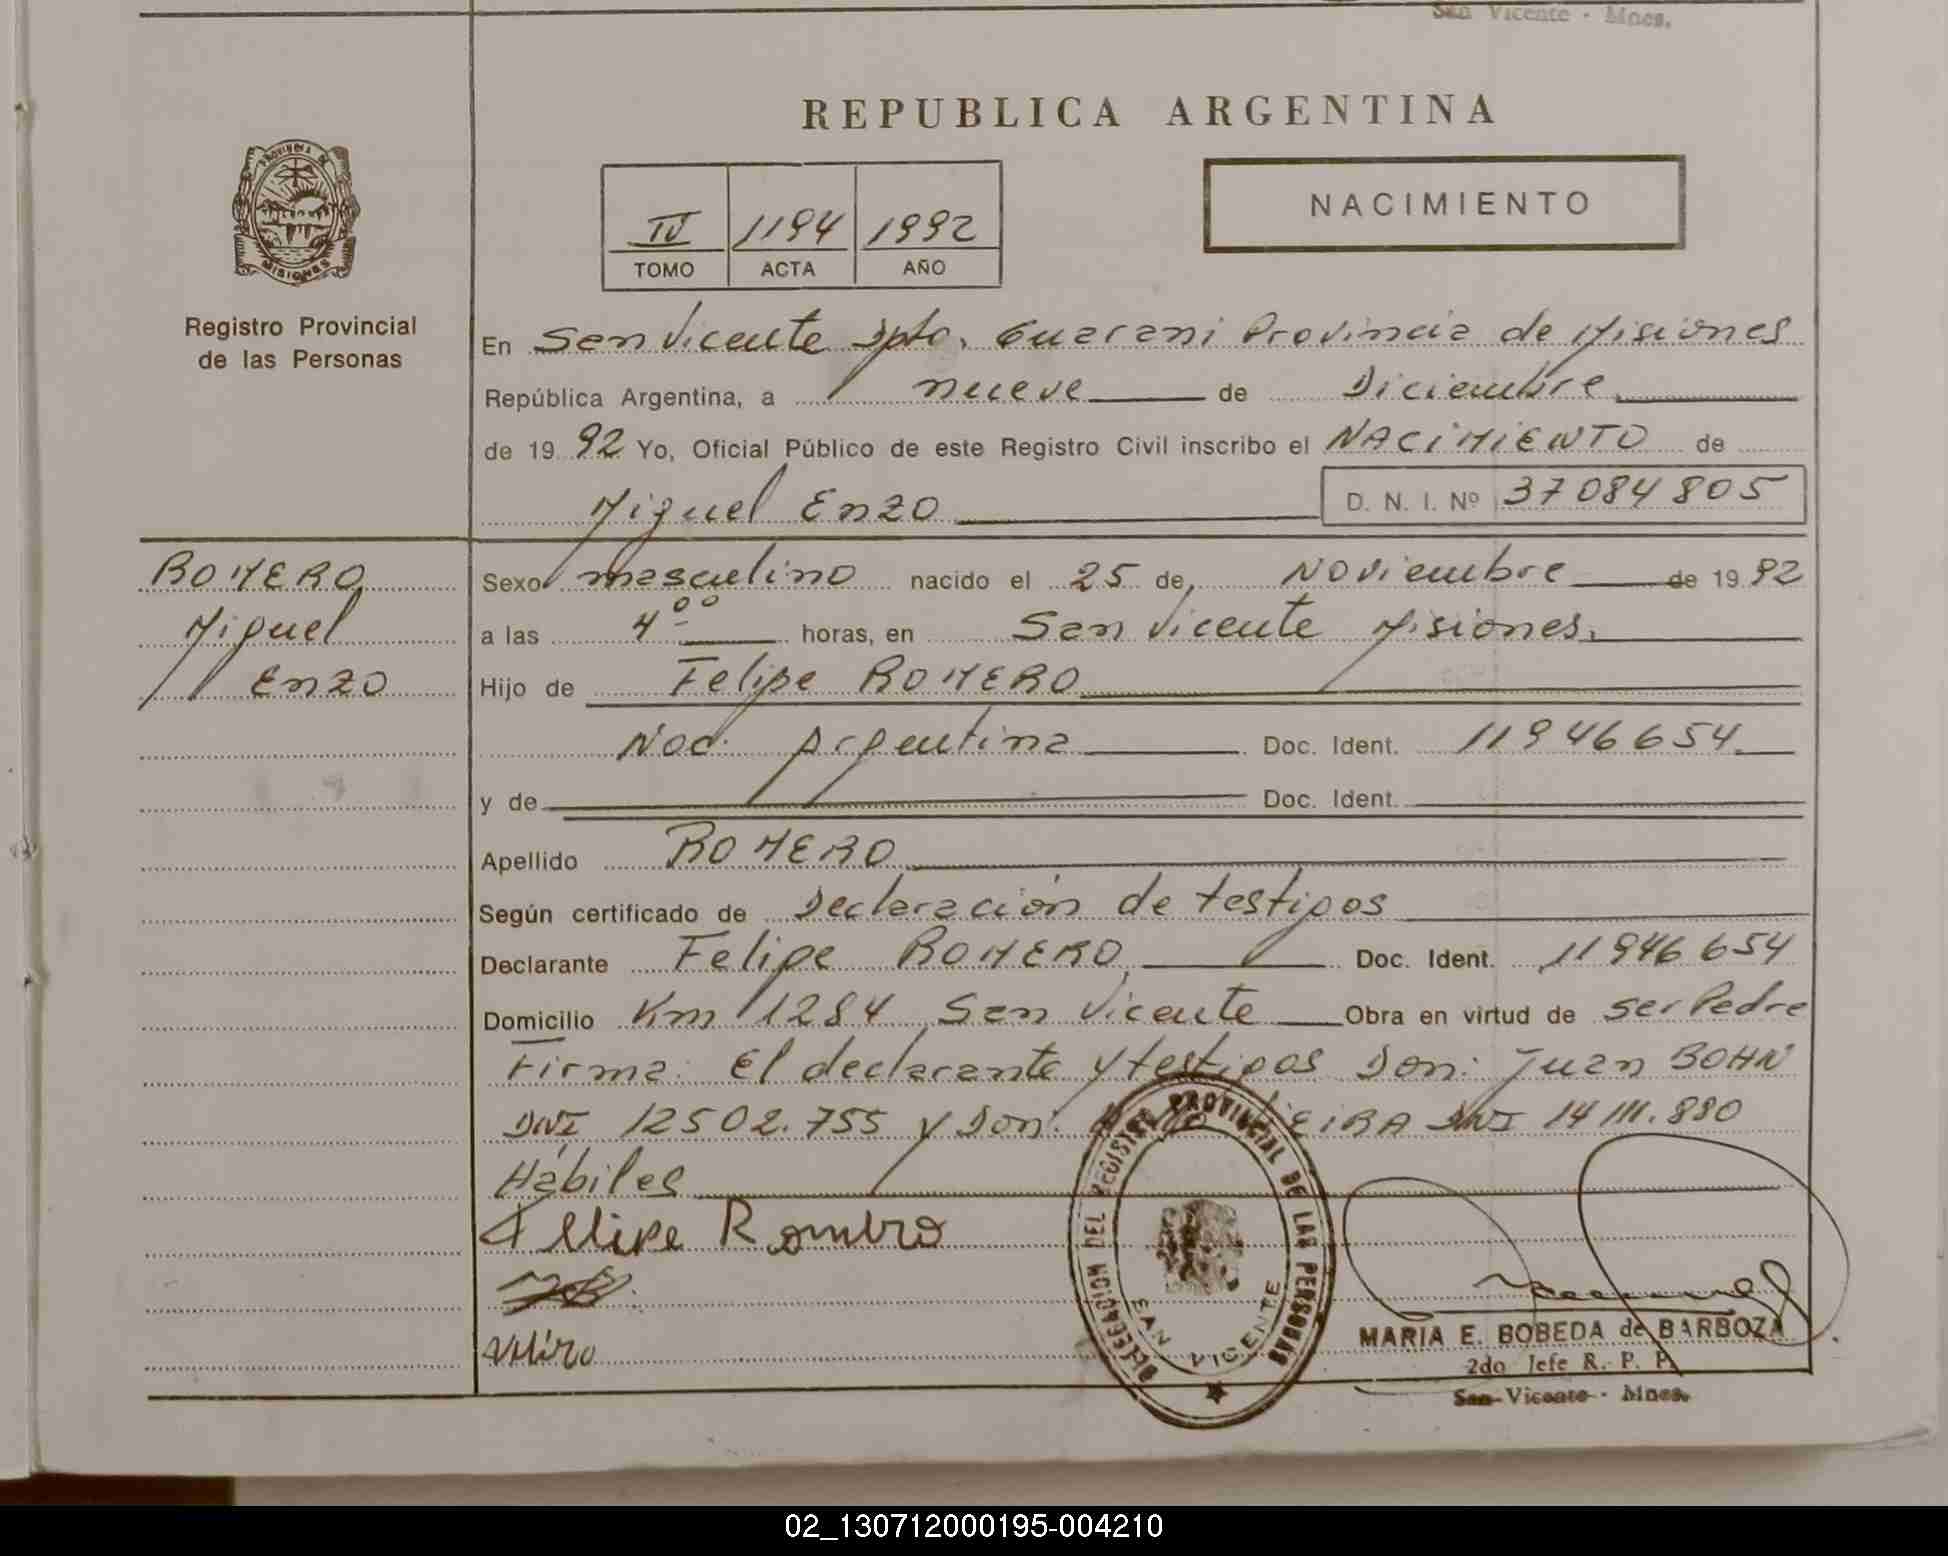 San Vicente - Mnes.
REPUBLICA ARGENTINA
PROVINCIA DE
MISIONES
Registro Provincial
de las Personas
IV 1194 1992
TOMO ACTA AÑO
NACIMIENTO
En San Vicente Dpto. Guarani Provincia de Misiones
República Argentina, a nueve de Diciembre
de 1992 Yo, Oficial Público de este Registro Civil inscribo el NACIMIENTO de
Miguel Enzo D. N. I. Nº 37084805
ROMERO
Miguel
Enzo
Sexo masculino nacido el 25 de Noviembre de 1992
a las 4°° horas, en San Vicente Misiones.
Hijo de Felipe ROMERO
Nac. Argentina Doc. Ident. 11946654
y de Doc. Ident.
Apellido ROMERO
Según certificado de Declaración de testigos
Declarante Felipe ROMERO Doc. Ident. 11946654
Domicilio Km 1284 San Vicente Obra en virtud de ser Padre
Firma: El declarante y testigos Don: Juan BOHN
DNI 12502.755 y Don: EIRA DNI 14111.880
Hábiles
Felipe Romero
DELEGACION DEL REGISTRO PROVINCIAL DE LAS PERSONAS
SAN VICENTE
MARIA E. BOBEDA de BARBOZA
2do Jefe R. P. P.
San Vicente - Mnes.
02_130712000195-004210